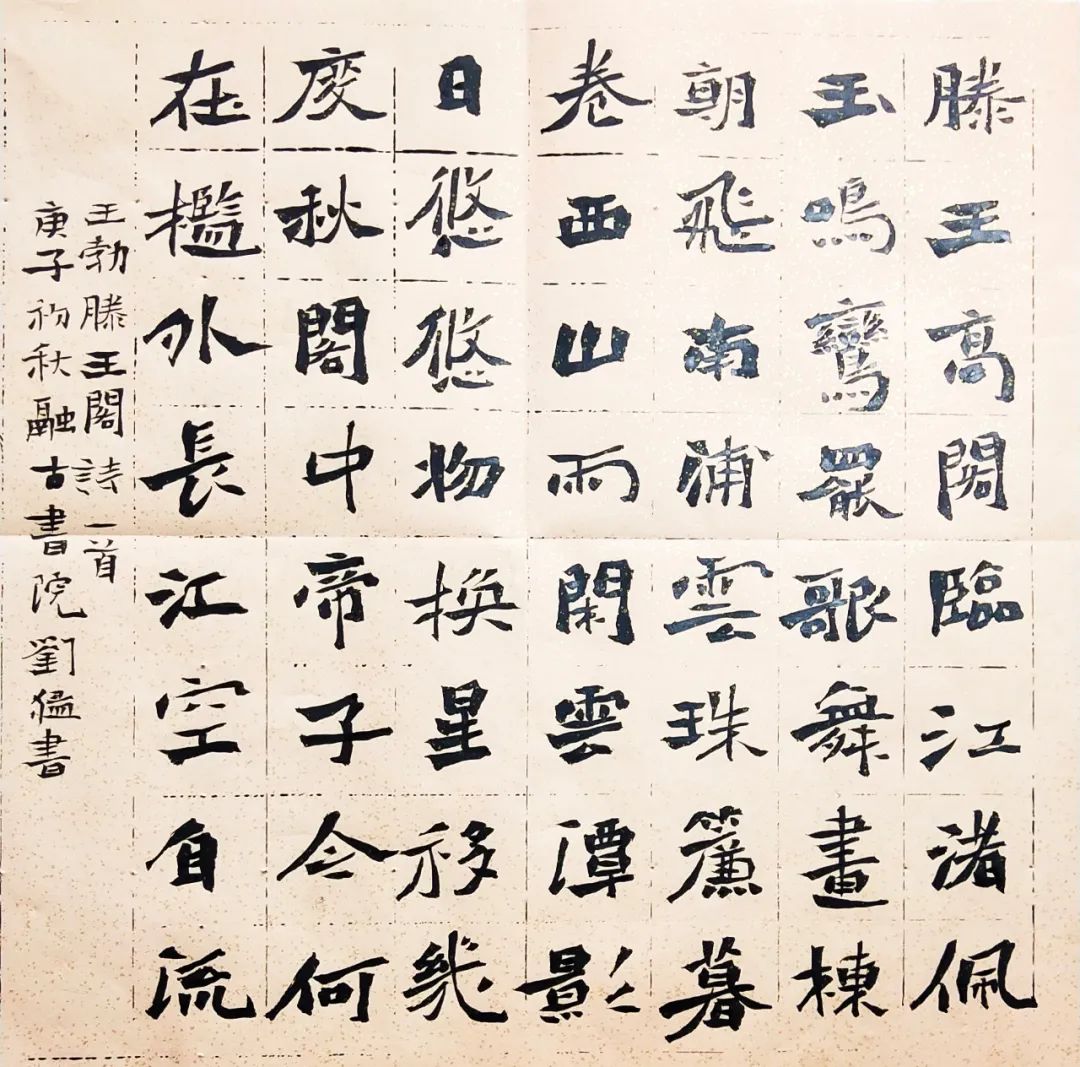 滕王高閣臨江渚佩
玉鳴鸞罷歌舞畫棟
朝飛南浦雲珠簾暮
卷西山雨閑雲潭影
日悠悠物換星移幾
度秋閣中帝子今何
在檻外長江空自流
王勃滕王閣詩一首
庚子初秋融古書院劉猛書